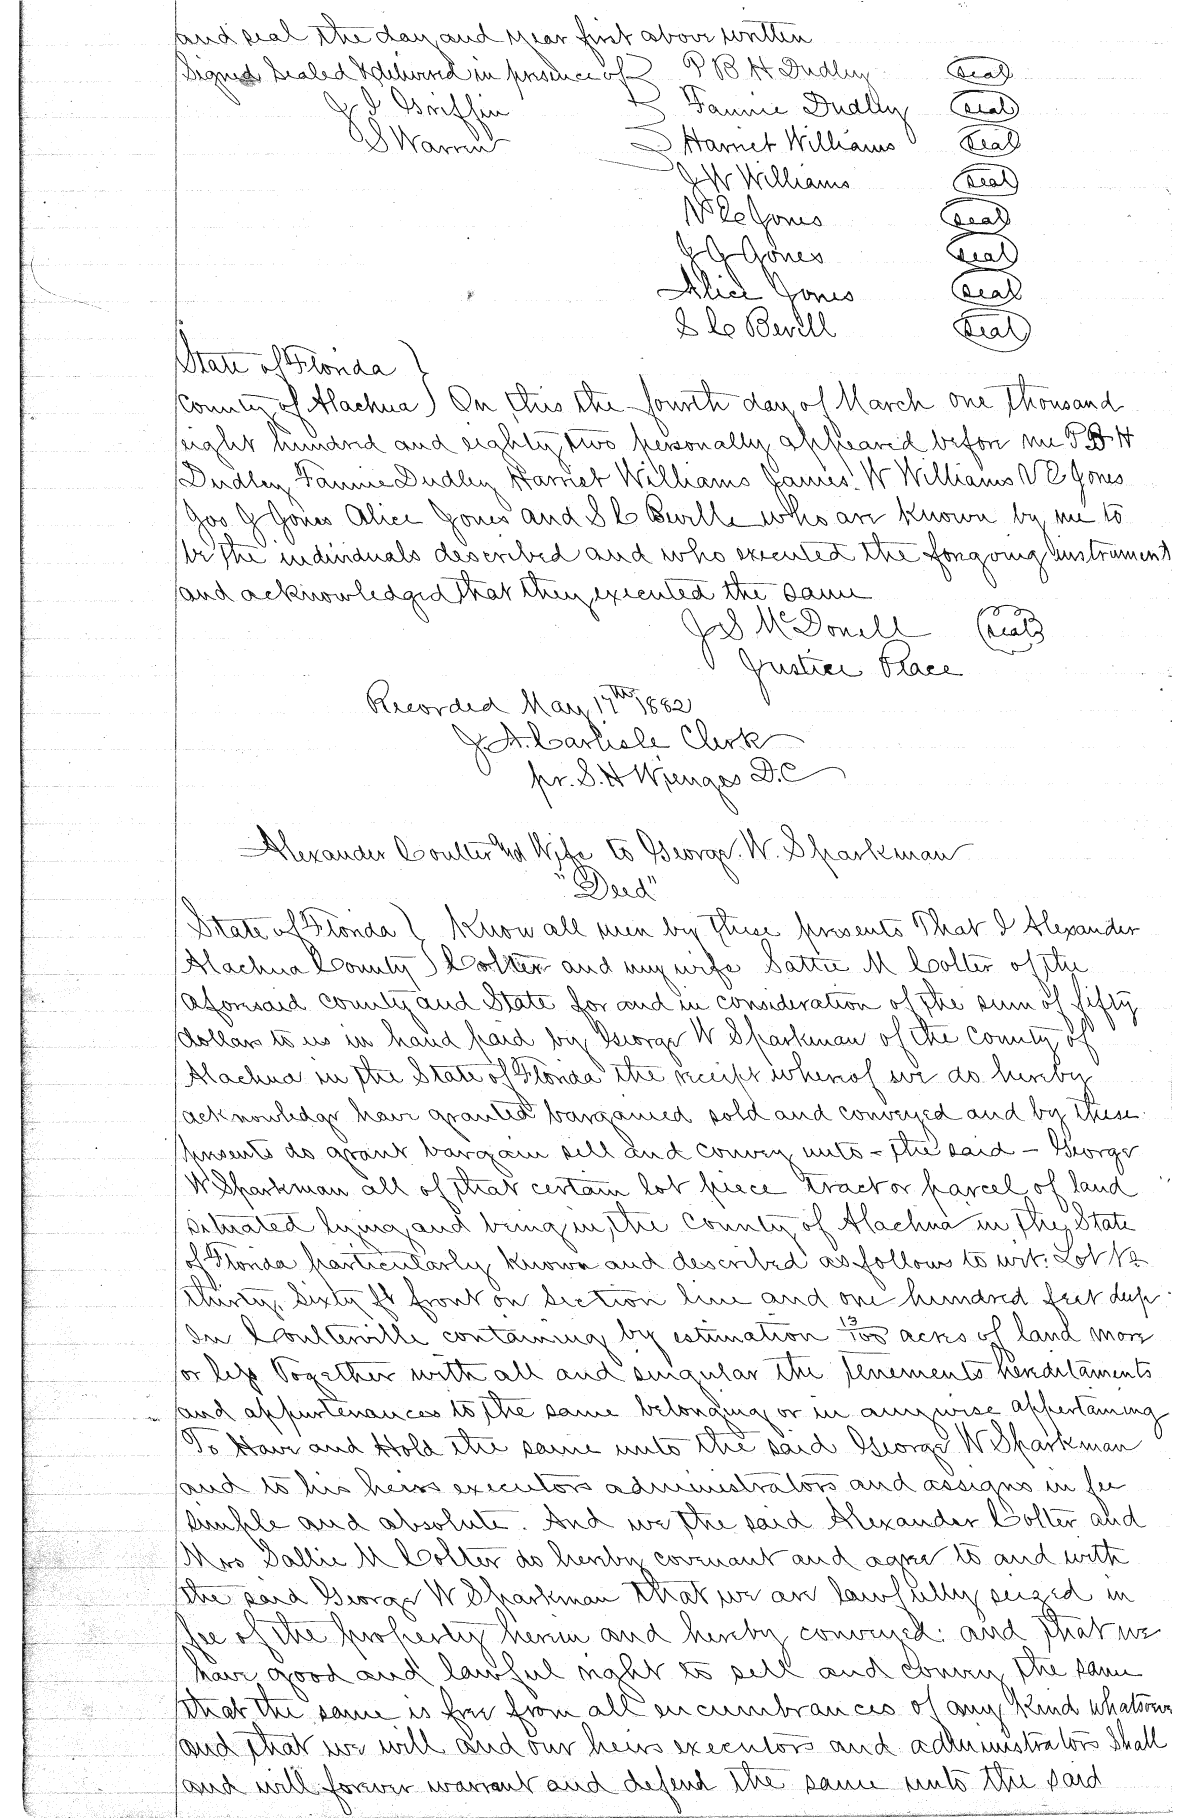 and seal the day and year first above written
Signed Sealed & delivered in presence of P B H Dudley seal
J I Griffin Fannie Dudley seal
S Warren Harriet Williams seal
J W Williams seal
V C Jones seal
J G Jones seal
Alice Jones seal
S C Bevill seal
State of Florida
County of Alachua) On this the fourth day of March one thousand
eight hundred and eighty two personally appeared before me P B H
Dudley Fannie Dudley Harriet Williams James W Williams V C Jones
Jos G Jones Alice Jones and S C Beville who are known by me to
be the individuals described and who executed the foregoing instrument
and acknowledged that they executed the same
J S McDonell (seal)
Justice Peace
Recorded May 17th 1882
J. A. Carlisle Clerk
pr. S. H Wienges D.C
Alexander Coulter and Wife to George. W. Sparkman
"Deed"
State of Florida } Know all men by these presents That I Alexander
Alachua County ) Colter and my wife Sattie M Colter of the
aforesaid county and State for and in consideration of the sum of fifty
dollars to us in hand paid by George W Sparkman of the County of
Alachua in the State of Florida the receipt whereof we do hereby
acknowledge have granted bargained sold and conveyed and by these
presents do grant bargain sell and convey unto - the said - George
W Sparkman all of that certain lot piece tract or parcel of land
situated lying and being in the County of Alachua in the State
of Florida particularly known and described as follows to wit: Lot No
thirty, Sixty ft front on Section line and one hundred feet deep
In Coulterville containing by estimation 13/100 acres of land more
or less Together with all and singular the tenements hereditaments
and appurtenances to the same belonging or in anywise appertaining
To Have and Hold the same unto the said George W Sparkman
and to his heirs executors administrators and assigns in fee
simple and absolute. And we the said Alexander Colter and
Mrs Sallie M Colter do hereby covenant and agree to and with
the said George W Sparkman that we are lawfully seized in
fee of the property herein and hereby conveyed: and that we
have good and lawful right to sell and convey the same
that the same is free from all encumbrances of any kind whatsoever
and that we will and our heirs executors and administrators shall
and will forever warrant and defend the same unto the said